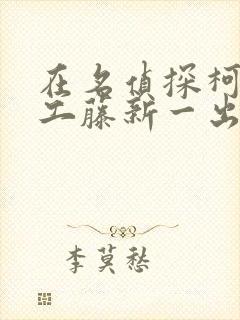 在名偵探柯
工藤新一出
李莫愁